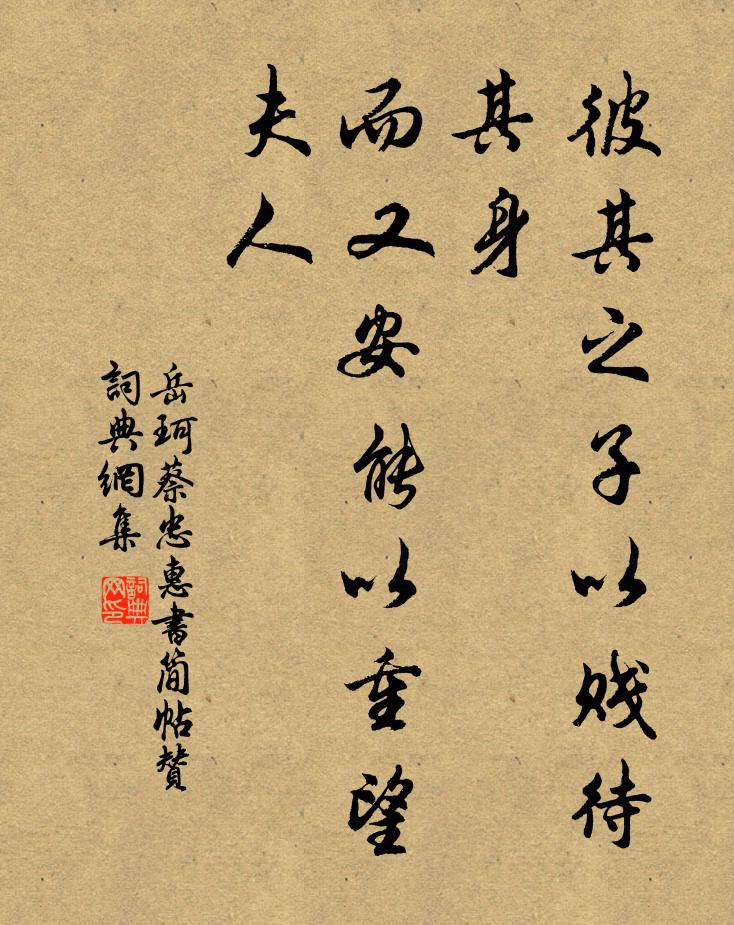 彼其之子以賤待
其身
而又安能以重望
夫人
岳珂蔡忠惠書簡帖贊
詞典網集
詞典
网印